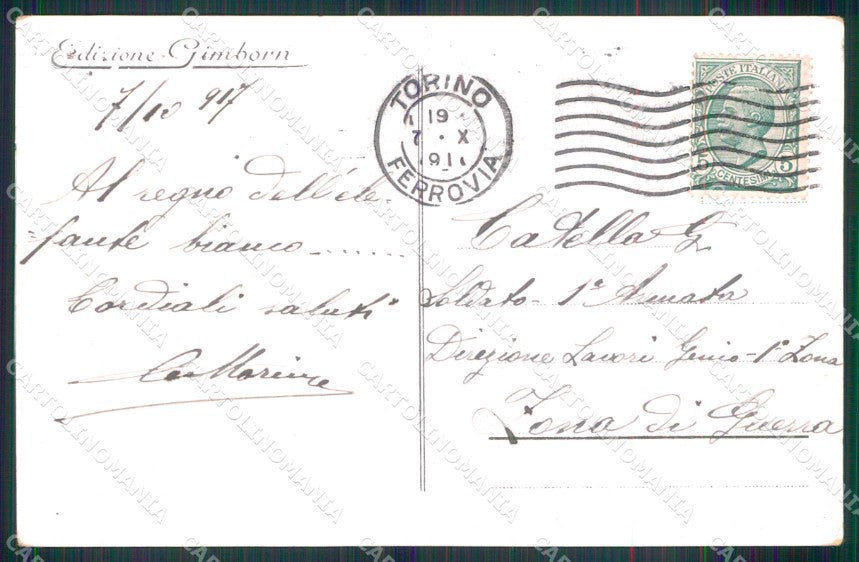 Edizione Gimborn
7/10 917
Al regno dell'ele-
fante bianco ......
Cordiali saluti
TORINO
19
7 · X
91
FERROVIA
POSTE ITALIANE
5 CENTESIMI 5
Catella G.
Soldato - 1ª Armata
Direzione Lavori Genio - 1ª Zona
Zona di Guerra
CARTOLINOMANIA